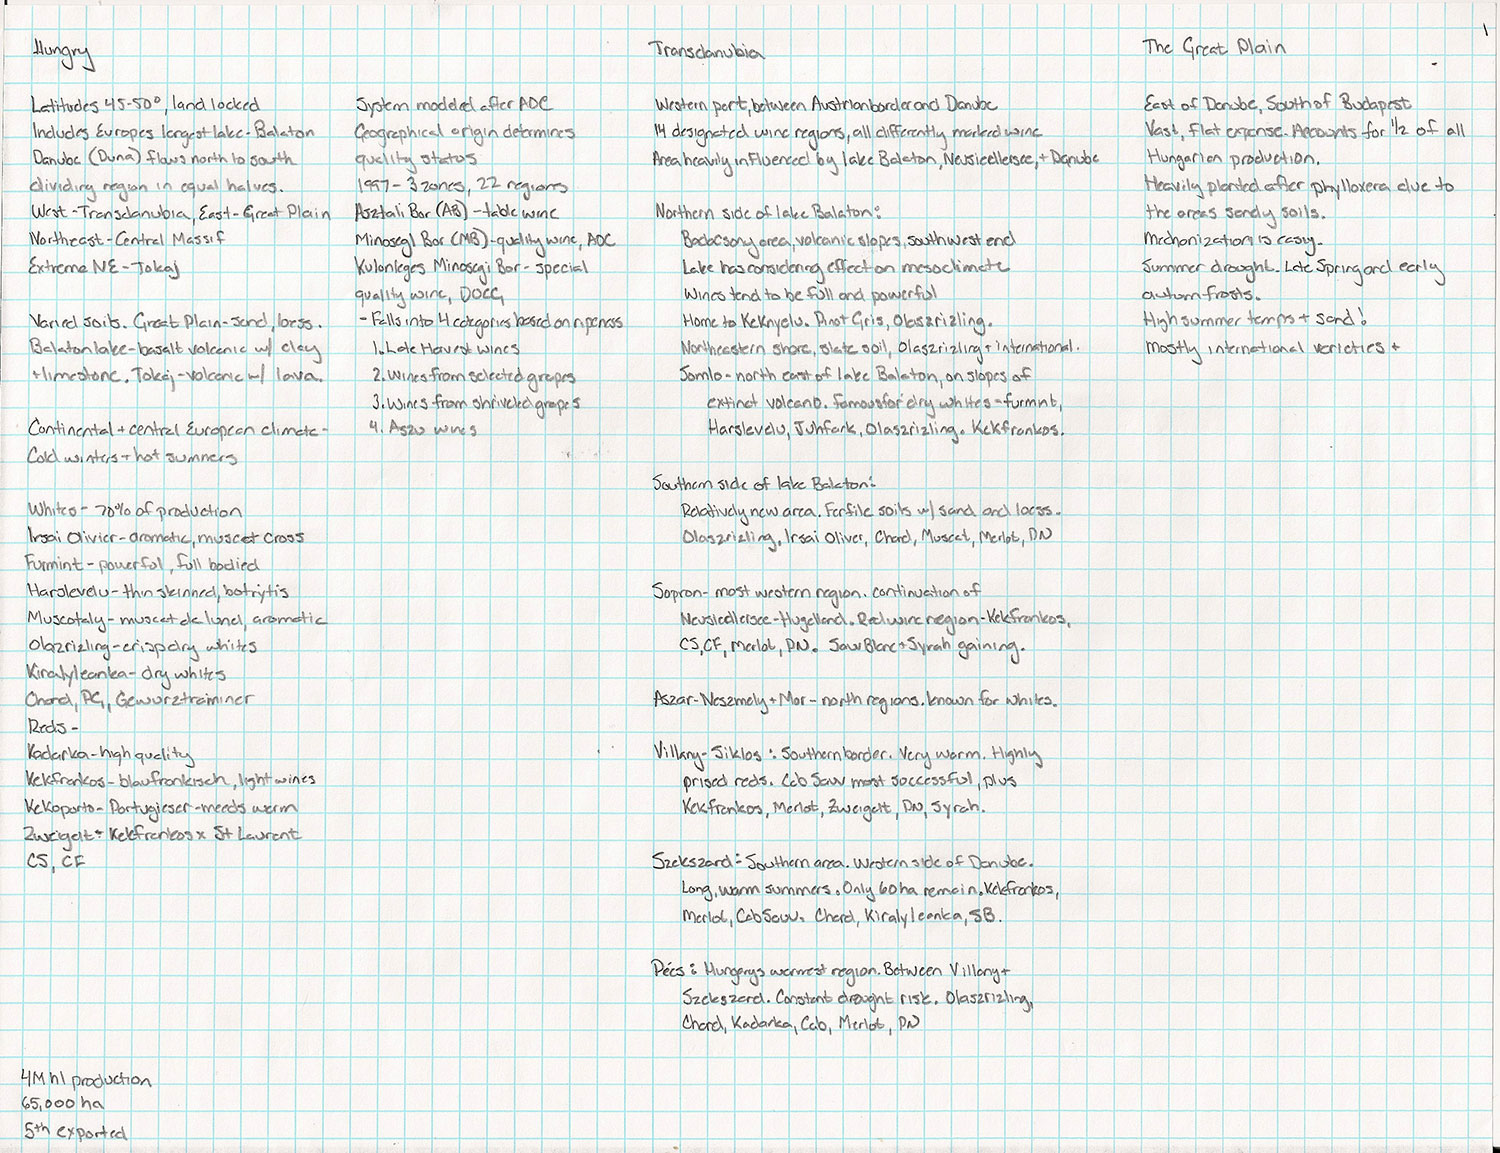 1
Hungry
Latitudes 45-50°, land locked
Includes Europes largest lake - Balaton
Danube (Duna) flows north to south
dividing region in equal halves.
West - Transdanubia, East - Great Plain
Northeast - Central Massif
Extreme NE - Tokaj
Varied soils. Great Plain - sand, loess.
Balaton lake - basalt volcanic w/ clay
+ limestone. Tokaj - volcanic w/ lava.
Continental + central European climate -
Cold winters + hot summers
Whites - 70% of production
Irsai Olivier - aromatic, muscat cross
Furmint - powerful, full bodied
Harslevelu - thin skinned, botrytis
Muscotaly - muscat de lunel, aromatic
Olazrizling - crisp dry whites
Kiralyleanka - dry whites
Chard, PG, Gewurztraminer
Reds -
Kadarka - high quality
Kekfrankos - blaufrankisch, light wines
Kekoporto - Portugieser - needs warm
Zweigelt: Kekfrankos x St Laurent
CS, CF
4M hl production
65,000 ha
5th exported
System modeled after AOC
Geographical origin determines
quality status
1997 - 3 zones, 22 regions
Asztali Bor (AB) - table wine
Minosegl Bor (MB) - quality wine, AOC
Kulonleges Minosegi Bor - special
quality wine, DOCG
- Falls into 4 categories based on ripeness
1. Late Harvest wines
2. Wines from selected grapes
3. Wines from shriveled grapes
4. Aszu wines
Transdanubia
Western part, between Austrian border and Danube
14 designated wine regions, all differently marked wine
Area heavily influenced by lake Balaton, Neusiedlersee, + Danube
Northern side of lake Balaton:
Badacsony area, volcanic slopes, southwest end
Lake has considering effect on mesoclimate
Wines tend to be full and powerful
Home to Keknyelu. Pinot Gris, Olaszrizling.
Northeastern shore, slate soil, Olaszrizling + international.
Somlo - north east of lake Balaton, on slopes of
extinct volcano. Famous for dry whites - furmint,
Harslevelu, Juhfark, Olaszrizling. Kekfrankos.
Southern side of lake Balaton:
Relatively new area. Fertile soils w/ sand and loess.
Olaszrizling, Irsai Oliver, Chard, Muscat, Merlot, PN
Sopron - most western region. continuation of
Neusiedlersee-Hugelland. Red wine region - Kekfrankos,
CS, CF, Merlot, PN. Sauv Blanc + Syrah gaining.
Aszar-Neszmely + Mor - north regions. known for whites.
Villany-Siklos: Southern border. Very warm. Highly
prised reds. Cab Sauv most successful, plus
Kekfrankos, Merlot, Zweigelt, PN, Syrah.
Szekszard: Southern area. Western side of Danube.
Long, warm summers. Only 60 ha remain. Kekfrankos,
Merlot, Cab Sauv. Chard, Kiralyleanka, SB.
Pécs: Hungarys warmest region. Between Villany +
Szekszard. Constant drought risk. Olaszrizling,
Chard, Kadarka, Cab, Merlot, PN
The Great Plain
East of Danube, South of Budapest
Vast, flat expanse. Accounts for 1/2 of all
Hungarian production.
Heavily planted after phylloxera due to
the areas sandy soils.
Mechanization is easy.
Summer drought. Late Spring and early
autum frosts.
High summer temps + sand!
Mostly international varieties +